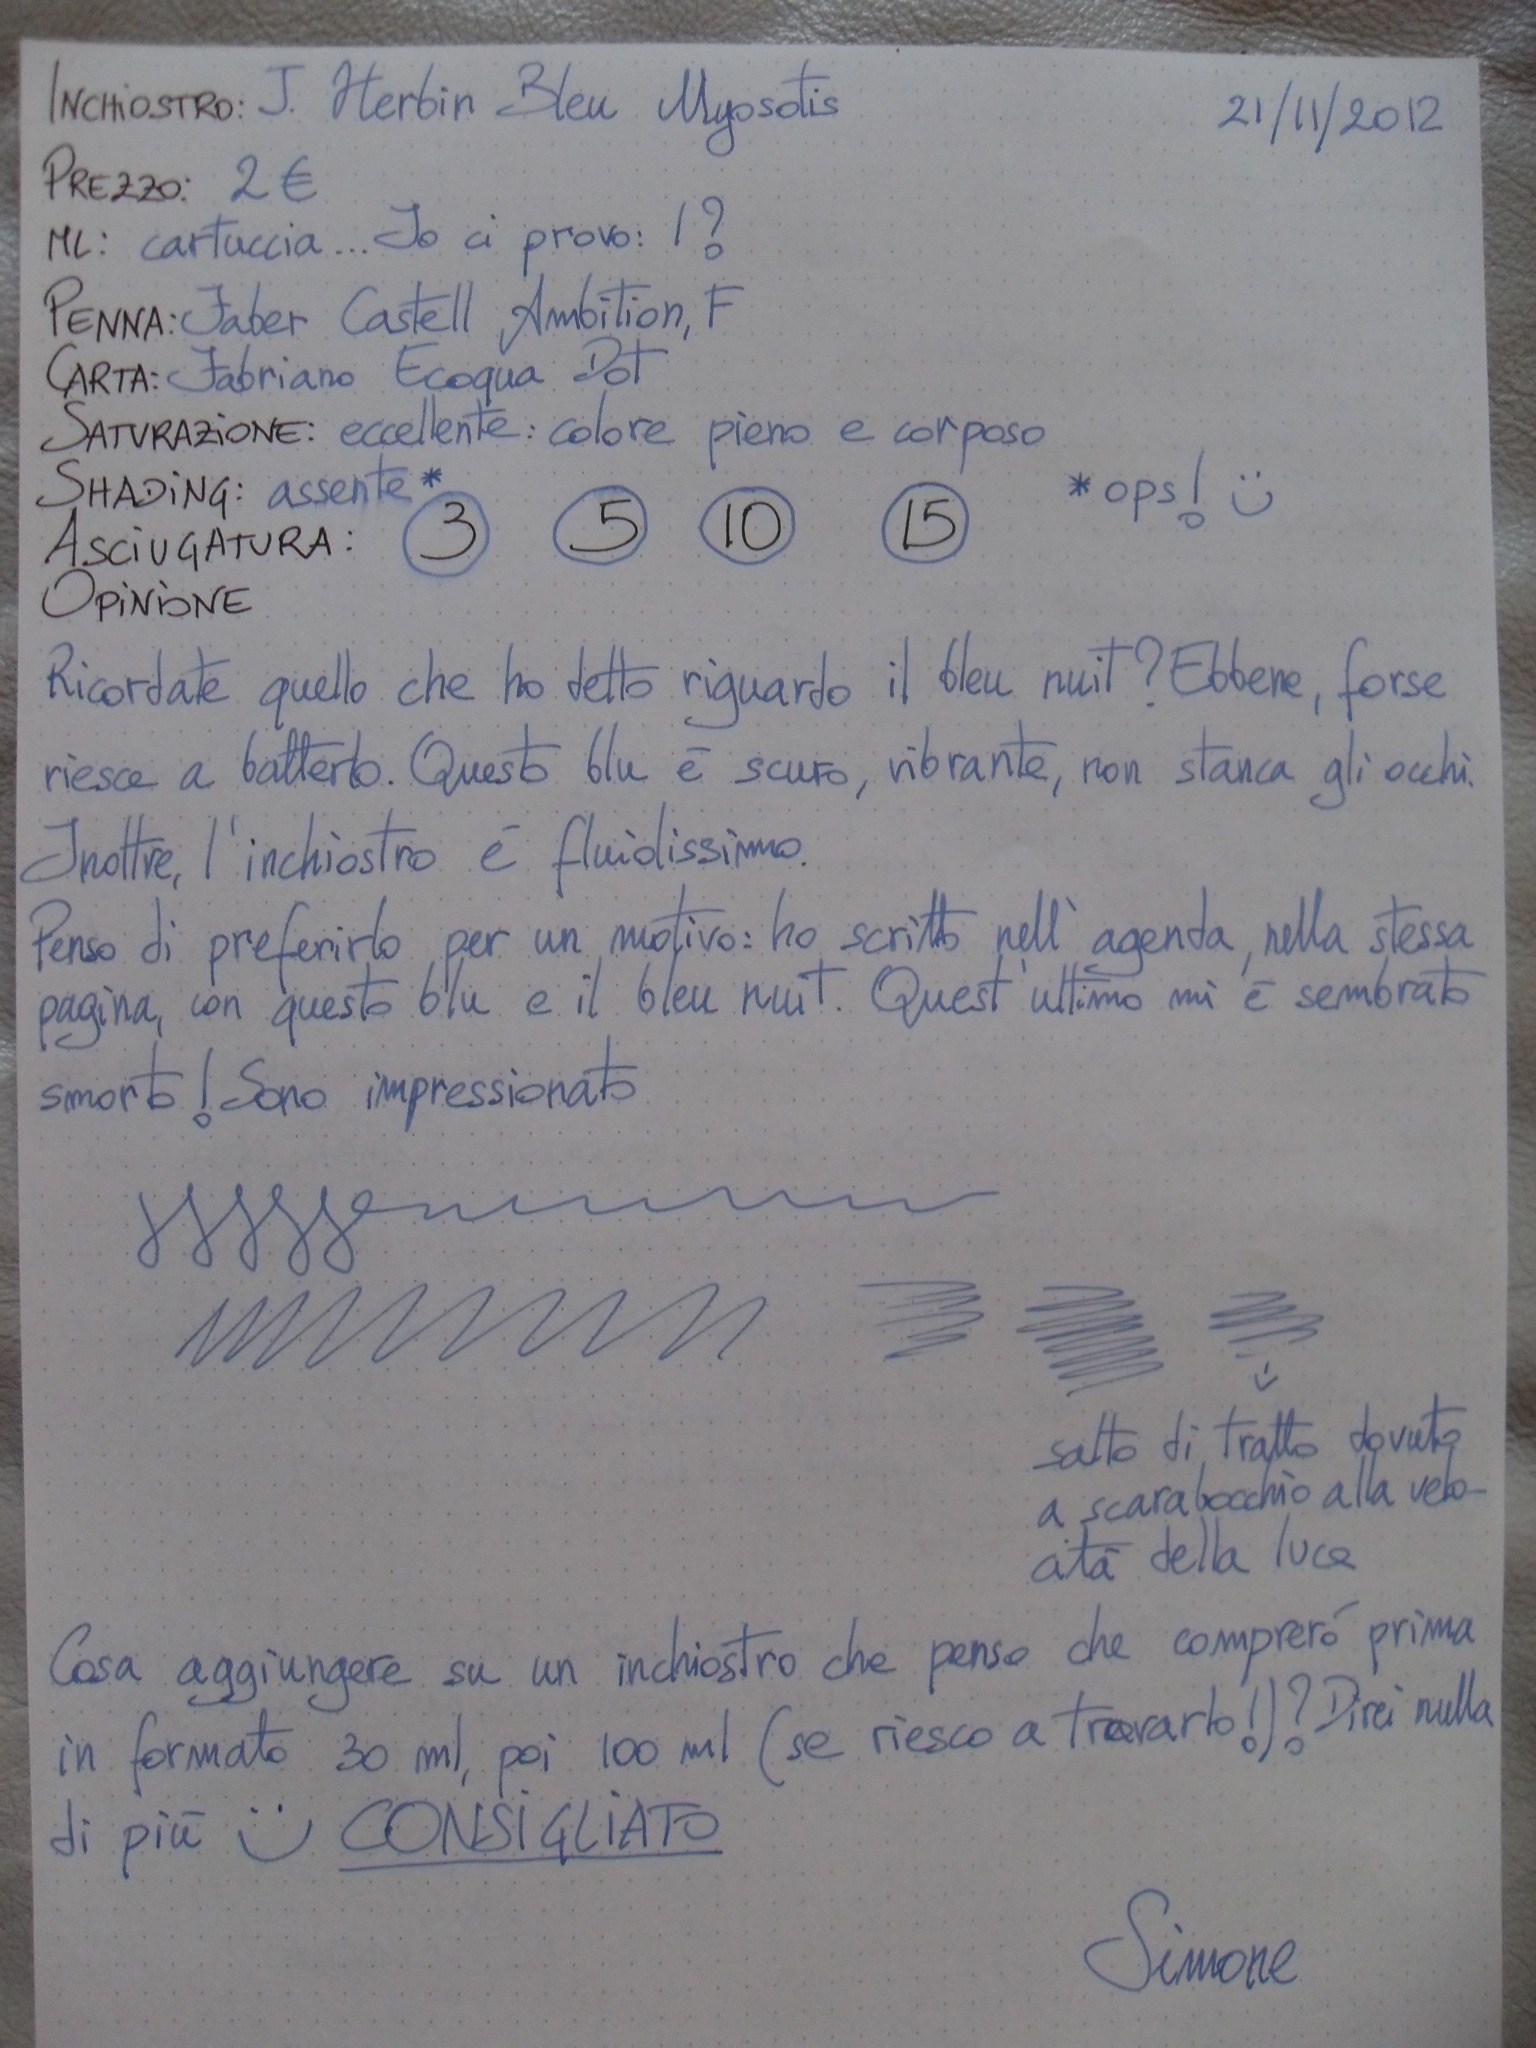 INCHIOSTRO: J. Herbin Bleu Myosotis 21/11/2012
PREZZO: 2 €
ML: cartuccia... Io ci provo: 1?
PENNA: Faber Castell Ambition, F
CARTA: Fabriano Ecoqua Dot
SATURAZIONE: eccellente: colore pieno e corposo
SHADING: assente* *ops! :)
ASCIUGATURA: 3 5 10 15
OPINIONE
Ricordate quello che ho detto riguardo il bleu nuit? Ebbene, forse
riesce a batterlo. Questo blu è scuro, vibrante, non stanca gli occhi.
Inoltre, l'inchiostro è fluidissimo.
Penso di preferirlo per un motivo: ho scritto nell'agenda, nella stessa
pagina, con questo blu e il bleu nuit. Quest'ultimo mi è sembrato
smorto! Sono impressionato
salto di tratto dovuto
a scarabocchio alla velo-
cità della luce
Cosa aggiungere su un inchiostro che penso che comprerò prima
in formato 30 ml, poi 100 ml (se riesco a trovarlo!)? Direi nulla
di più :) CONSIGLIATO
Simone